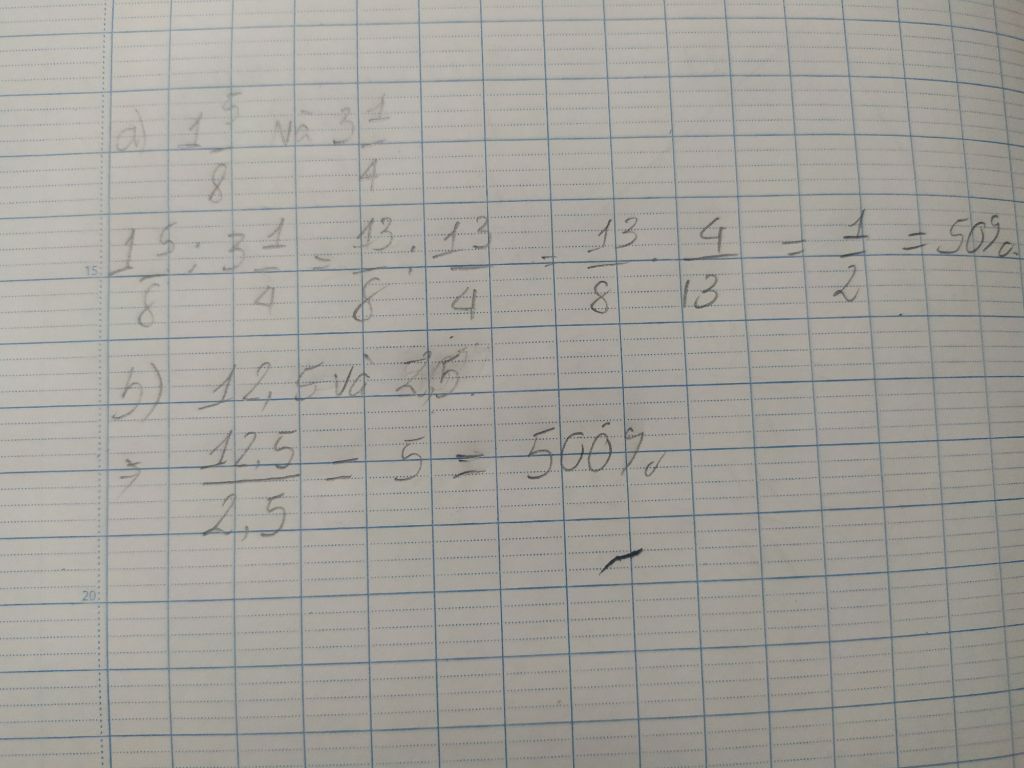 a) 1 5/8 và 3 1/4
15
1 5/8 : 3 1/4 = 13/8 : 13/4 = 13/8 . 4/13 = 1/2 = 50%
b) 12,5 và 2,5
=> 12,5/2,5 = 5 = 500%
20